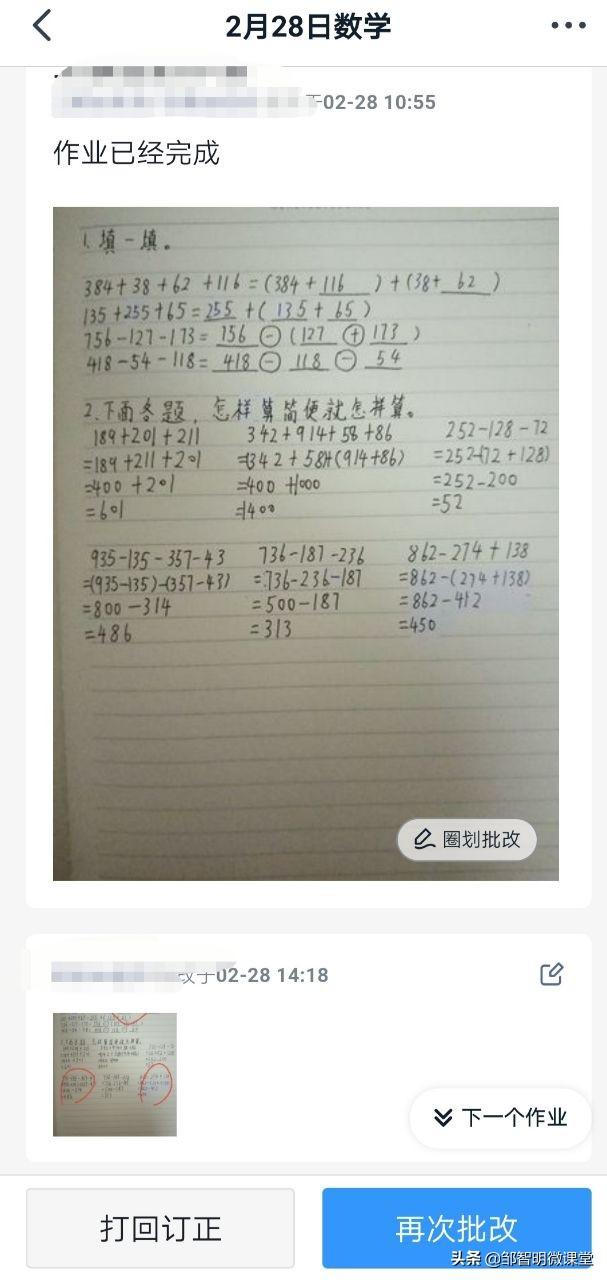 2月28日数学
于02-28 10:55
作业已经完成
1.填一填。
384+38+62+116=(384+116)+(38+62)
135+255+65=255+(135+65)
756-127-173=756⊖(127⊕173)
418-54-118=418⊖118⊖54
2.下面各题,怎样算简便就怎样算。
189+201+211 342+914+58+86 252-128-72
=189+211+201 =(342+58)+(914+86) =252-(72+128)
=400+201 =400+1000 =252-200
=601 =1400 =52
935-135-357-43 736-187-236 862-274+138
=(935-135)-(357-43) =736-236-187 =862-(274+138)
=800-314 =500-187 =862-412
=486 =313 =450
圈划批改
改于02-28 14:18
下一个作业
打回订正
再次批改
头条 @邹智明微课堂